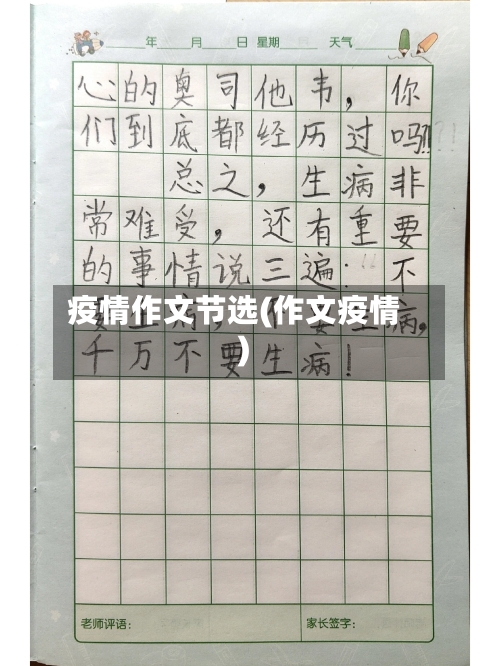 年 月 日 星期 天气
心的奥司他韦，你
们到底都经历过吗?!!
总之，生病非
常难受，还有重要
的事情说三遍：不
疫情作文节选(作文疫情
)
病，
千万不要生病！
老师评语： 家长签字：